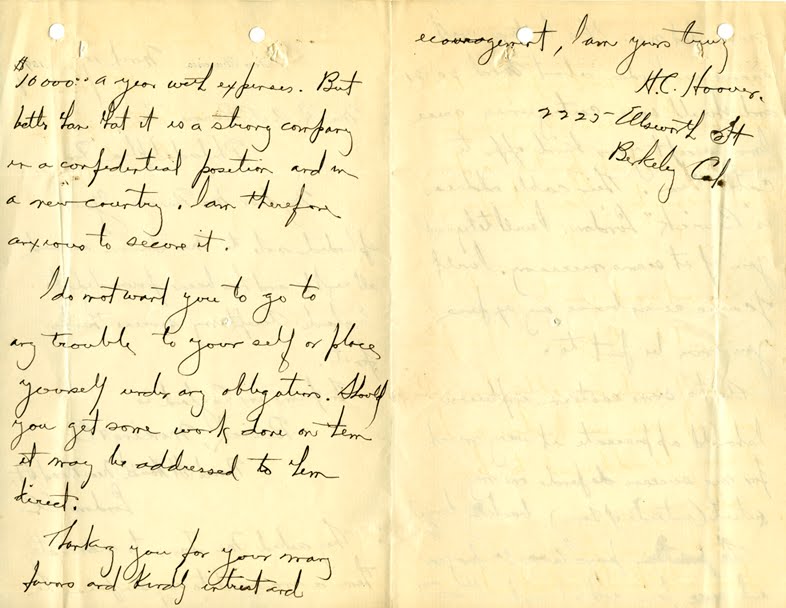 $10000.00 a year with expenses. But
better than that it is a strong company
in a confidential position and in
a new country. I am therefore
anxious to secure it.
I do not want you to go to
any trouble to your self or place
yourself under any obligations. Should
you get some work done on them
it may be addressed to them
direct.
Thanking you for your many
favors and kindly intrest and
ecouragement, I am yours truly
H.C. Hoover.
2225 Ellsworth St
Berkeley Cal.